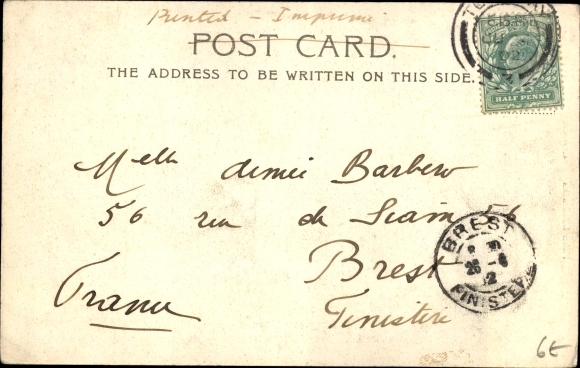 Printed - Imprimé
POST CARD.
THE ADDRESS TO BE WRITTEN ON THIS SIDE.
HALF PENNY
Melle Aimée Barbero
56 rue de Siam 56
Brest
Finistère
France
BREST
25 -6
FINISTERE
6E